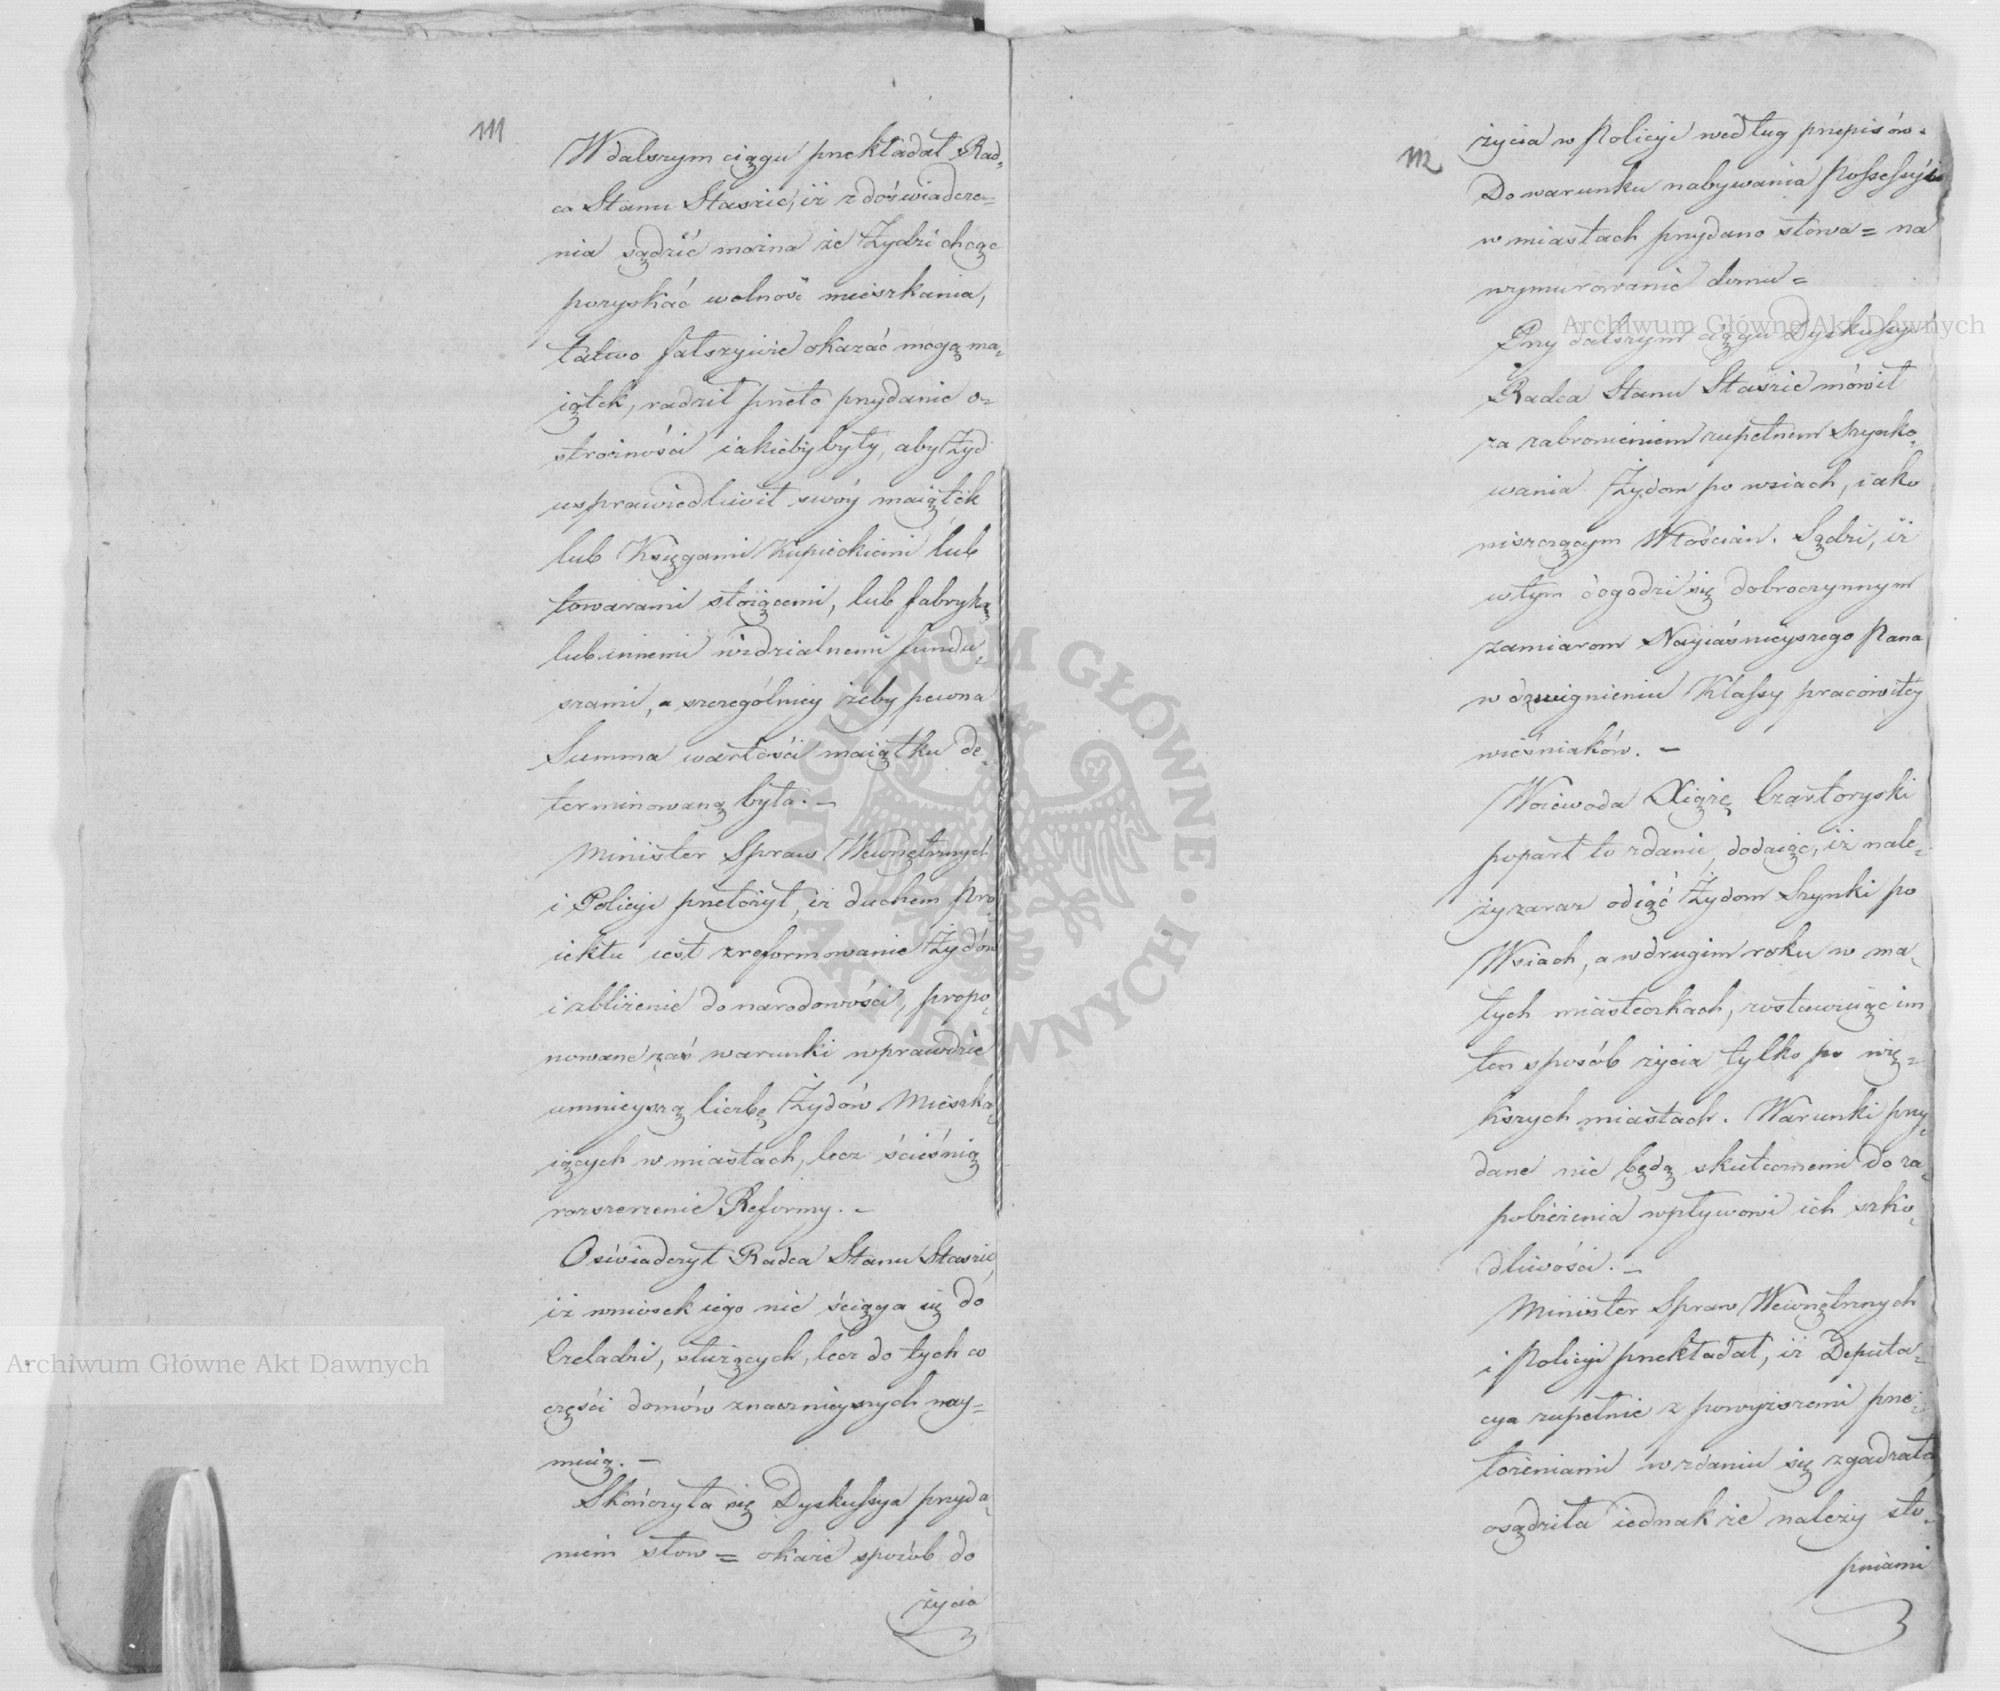 111
W dalszym ciągu przekładał Rad-
ca Stanu Staszic, iż z doświadcze-
nia sądzić można że Żydzi chcąc
pozyskać wolność mieszkania,
łatwo fałszywie okazać mogą ma-
iątek, radził przeto przydanie o-
strożności iakieby były, aby Żyd
usprawiedliwił swóy maiątek
lub Księgami Kupieckiemi lub
towarami stoiącemi, lub fabryką
lub innemi widzialnemi fundu-
szami, a szczególniey żeby pewna
Summa wartości maiątku de-
terminowaną była. –
Minister Spraw Wewnętrznych
i Policyi przełożył, iż duchem Pro-
iektu iest zreformowanie Żydów
i zbliżenie do narodowości, propo-
nowane zaś warunki wprawdzie
umnieyszą liczbę Żydów Mieszka-
iących w miastach, lecz ścieśnią
rozszerzenie Reformy. –
Oświadczył Radca Stanu Staszic,
iż wniosek iego nie ściąga się do
Czeladzi, służących, lecz do tych co
części domów znacznieyszych nay-
muią. –
Skończyła się Dyskussya przyda-
niem słow = okaże sposób do
życia
112
życia w Policyi według przepisów.
Do warunku nabywania Possessyi
w miastach przydano słowa = na
wymurowanie domu =
Przy dalszym ciągu Dyskussyi
Radca Stanu Staszic mówił
za zabronieniem zupełnem Szynko-
wania Żydom po wsiach, iako
niszczącym Włościan. Sądzi, iż
w tym dogodzi się dobroczynnym
zamiarom Nayiaśnieyszego Pana
w dzwignieniu Klassy pracowitey
wieśniaków. –
Woiewoda Xiąże Czartoryski
poparł to zdanie, dodaiąc, iż nale-
ży zaraz odiąć Żydom Szynki po
Wsiach, a w drugim roku w ma-
łych miasteczkach, zostawuiąc im
ten sposób życia tylko po wię-
kszych miastach. Warunki przy-
dane nie będą skutecznemi do za-
pobieżenia wpływowi ich szko-
dliwości. –
Minister Spraw Wewnętrznych
i Policyi przekładał, iż Deputa-
cya zupełnie z powyższemi prze-
łożeniami w zdaniu się zgadzała,
osądziła iednak że należy sto-
pniami
Archiwum Główne Akt Dawnych
Archiwum Główne Akt Dawnych
ARCHIWUM GŁÓWNE AKT DAWNYCH